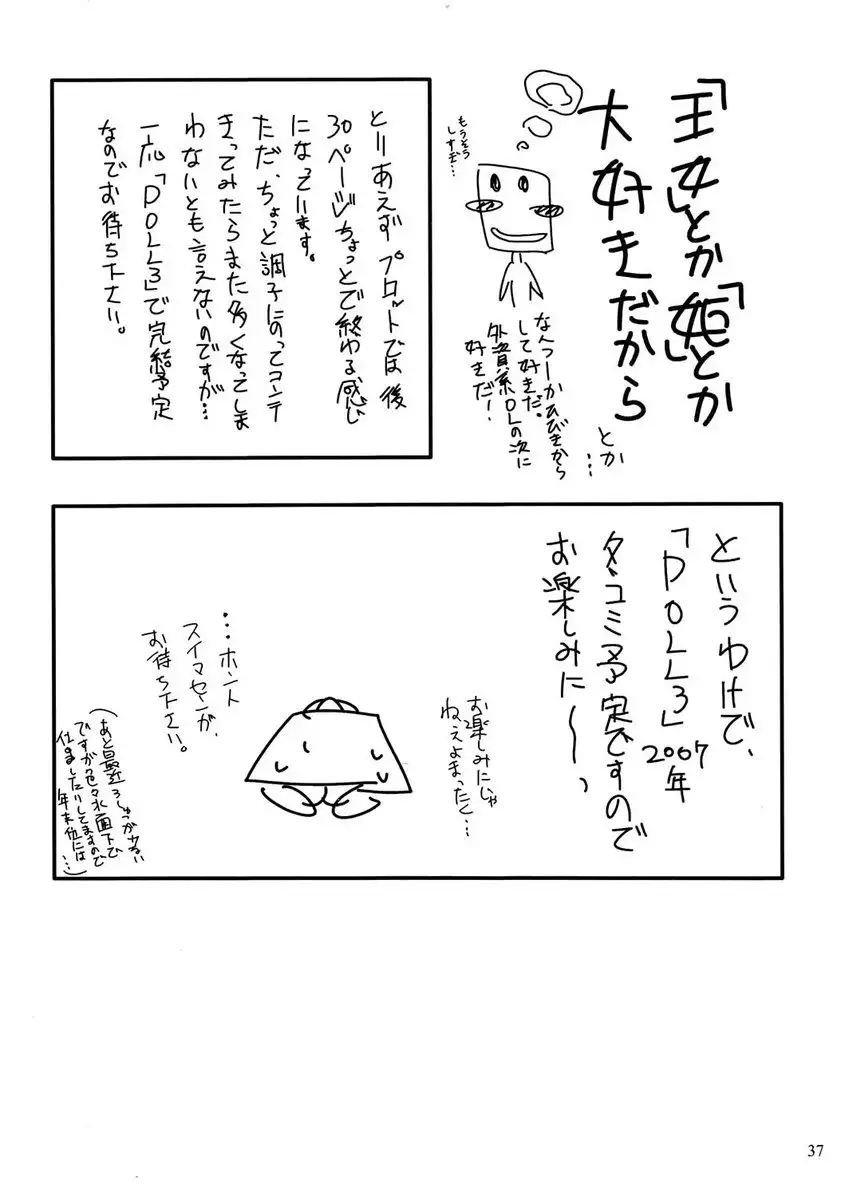 「王女」とか「姫」とか
大好きだから
とか…
もうそう
しすぎ…
なんつーかひびきから
して好きだ。
外資系OLの次に
好きだ!
とりあえずプロットでは後
30ページちょっとで終わる感じ
になっています。
ただ、ちょっと調子にのってコンテ
きってみたらまた多くなってしま
わないとも言えないのですが…
一応「DOLL3」で完結予定
なのでお待ち下さい。
というわけで、
「DOLL3」2007年
冬コミ予定ですので
お楽しみに〜、
お楽しみにじゃ
ねぇよまったく…
…ホント
スイマセンが、
お待ち下さい。
(あと最近ろしゅつが少ない
ですが色々水面下で
仕事したりしてますので
年末位には
…)
37